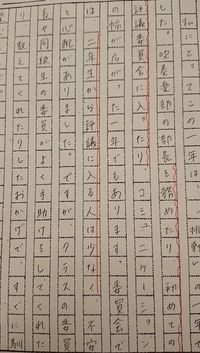 私にとってこの一年は、挑戦
した。吹奏楽部の部長を務めたり、初めての
評議委員会に入ったり、コミュニケーション
の幅が広がった一年でもあります。委員会で
は、二年生から評議に入る人は少なく、不安
と心配がありました。ですが、クラスの委員
長や同級生の委員がよく手助けをしてくれた
り、教えてくれたりしたおかげで、すぐに馴